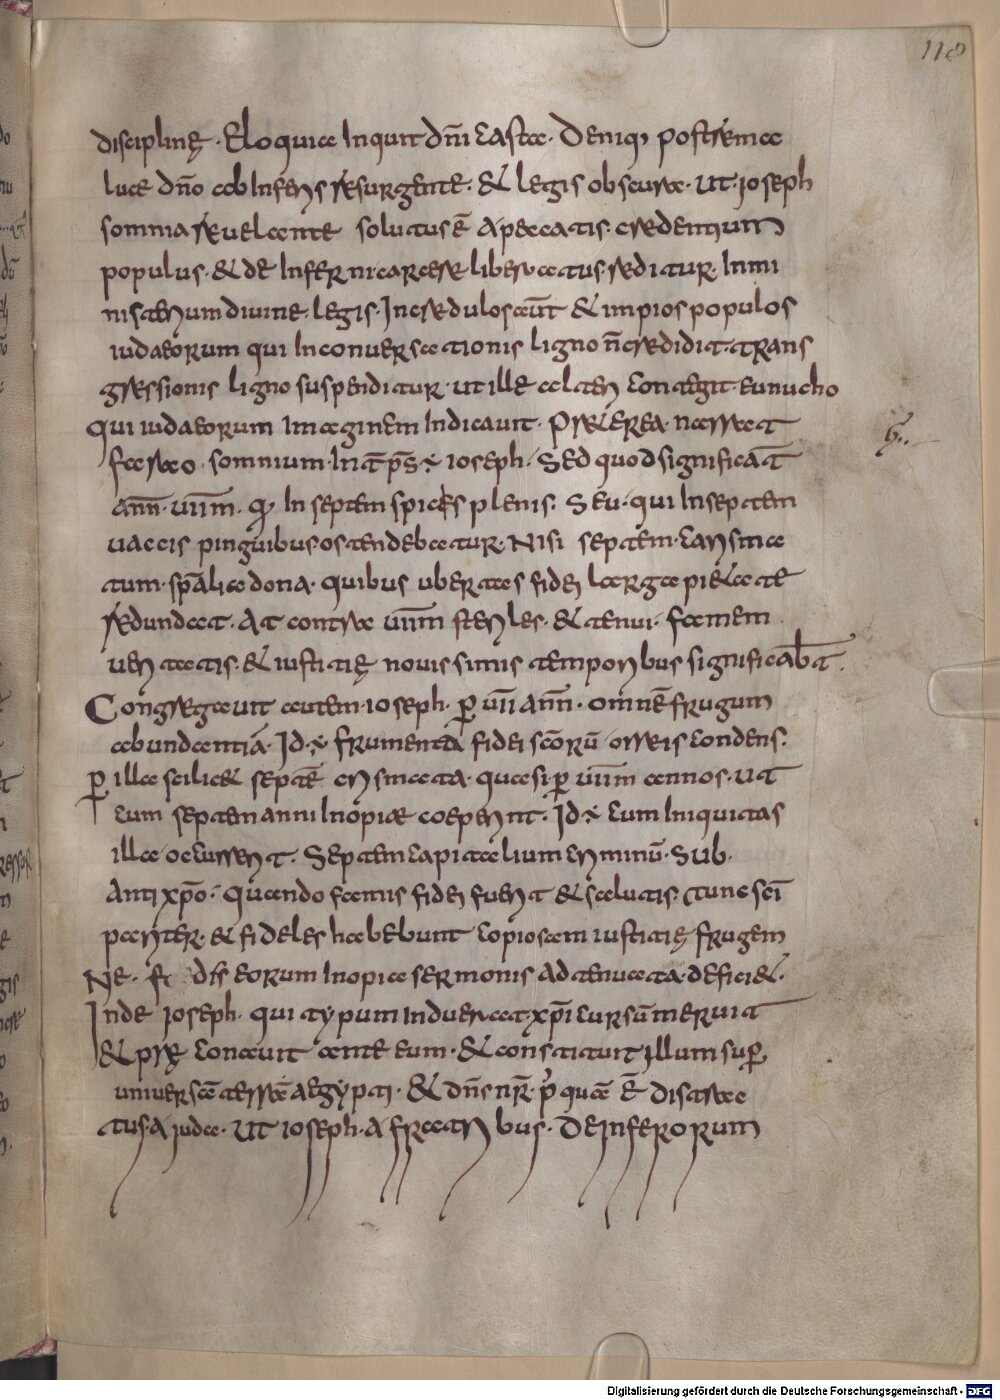 118
disciplinę · Eloquia Inquit dn̄i casta · Deniq; postrema
luce dn̄o ab Inferis resurgente · & legis obscura · ut · ioseph
somnia reuelante solutus ē a peccatis · credentium
populus · & de Inferni carcere liberatus reditur Inmi
nisterium diuine · legis · Incredulos aūt & impios populos
iudaeorum qui In conuersationis ligno n̄ credidit · trans
gressionis ligno suspenditur · ut ille alter contegit · eunucho
qui iudaeorum Imaginem Indicauit · Praeterea · narrat
farao · somnium · ioseph · Sed quod significat̄
ann̄ · uiīm · In septem spicis plenis · Seu · qui In septem
uaccis pinguibus ostendebatur · Nisi septem · carisma
tum · sp̄alia dona · quibus ubertas fidei larga pi&ate
redundat · At contra uiīm steriles · & tenui · famem
ueritatis · & iustitię nouissimis temporibus significab̄t ·
Congregauit autem · ioseph · ꝑ uii ann̄ · omnē frugum
abundantiā · Id · ÷ frumenta fidei sc̄orū orreis condens ·
ꝑ illa scilic& septē crismata · quasi ꝑ uiīm annos · ut
cum septem anni Inopiae coeperint · Id ÷ cum Iniquitas
illa occurrerit · Septem capitalium criminū · Sub ·
Anti xp̄o · Quando famis fidei fuerit & salutis · tunc sc̄i
pariter · & fideles habebunt copiosam iustitię frugem
Ne · fides eorum Inopia sermonis adtenuata · defici& ·
Inde ioseph · qui typum Induerat · xp̄i currūm meruit
& pręconauit ante eum · & constituit illum suꝑ
uniuersā terrā aegypti · & dn̄s nr̄ · quā ē distrac
tus · a juda · ut ioseph · a fratribus · De Inferorum